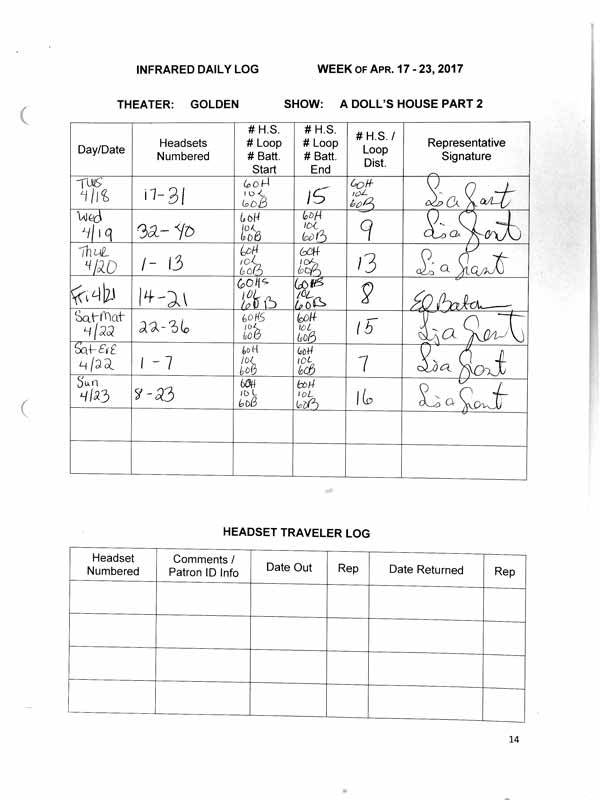 INFRARED DAILY LOG WEEK OF APR. 17 - 23, 2017
THEATER: GOLDEN SHOW: A DOLL'S HOUSE PART 2
Day/Date Headsets Numbered # H.S. # Loop # Batt. Start # H.S. # Loop # Batt. End # H.S. / Loop Dist. Representative Signature
Tus 4/18 17-31 60H 10L 60B 15 60H 10L 60B Lisa Grant
Wed 4/19 32-40 60H 10L 60B 60H 10L 60B 9 Lisa Grant
Thur 4/20 1-13 60H 10L 60B 60H 10L 60B 13 Lisa Grant
Fri 4/21 14-21 60HS 10L 60B 60HS 10L 60B 8
Sat Mat 4/22 22-36 60HS 10L 60B 60H 10L 60B 15 Lisa Grant
Sat EvE 4/22 1-7 60H 10L 60B 60H 10L 60B 7 Lisa Grant
Sun 4/23 8-23 60H 10L 60B 60H 10L 60B 16 Lisa Grant
HEADSET TRAVELER LOG
Headset Numbered Comments / Patron ID Info Date Out Rep Date Returned Rep
14